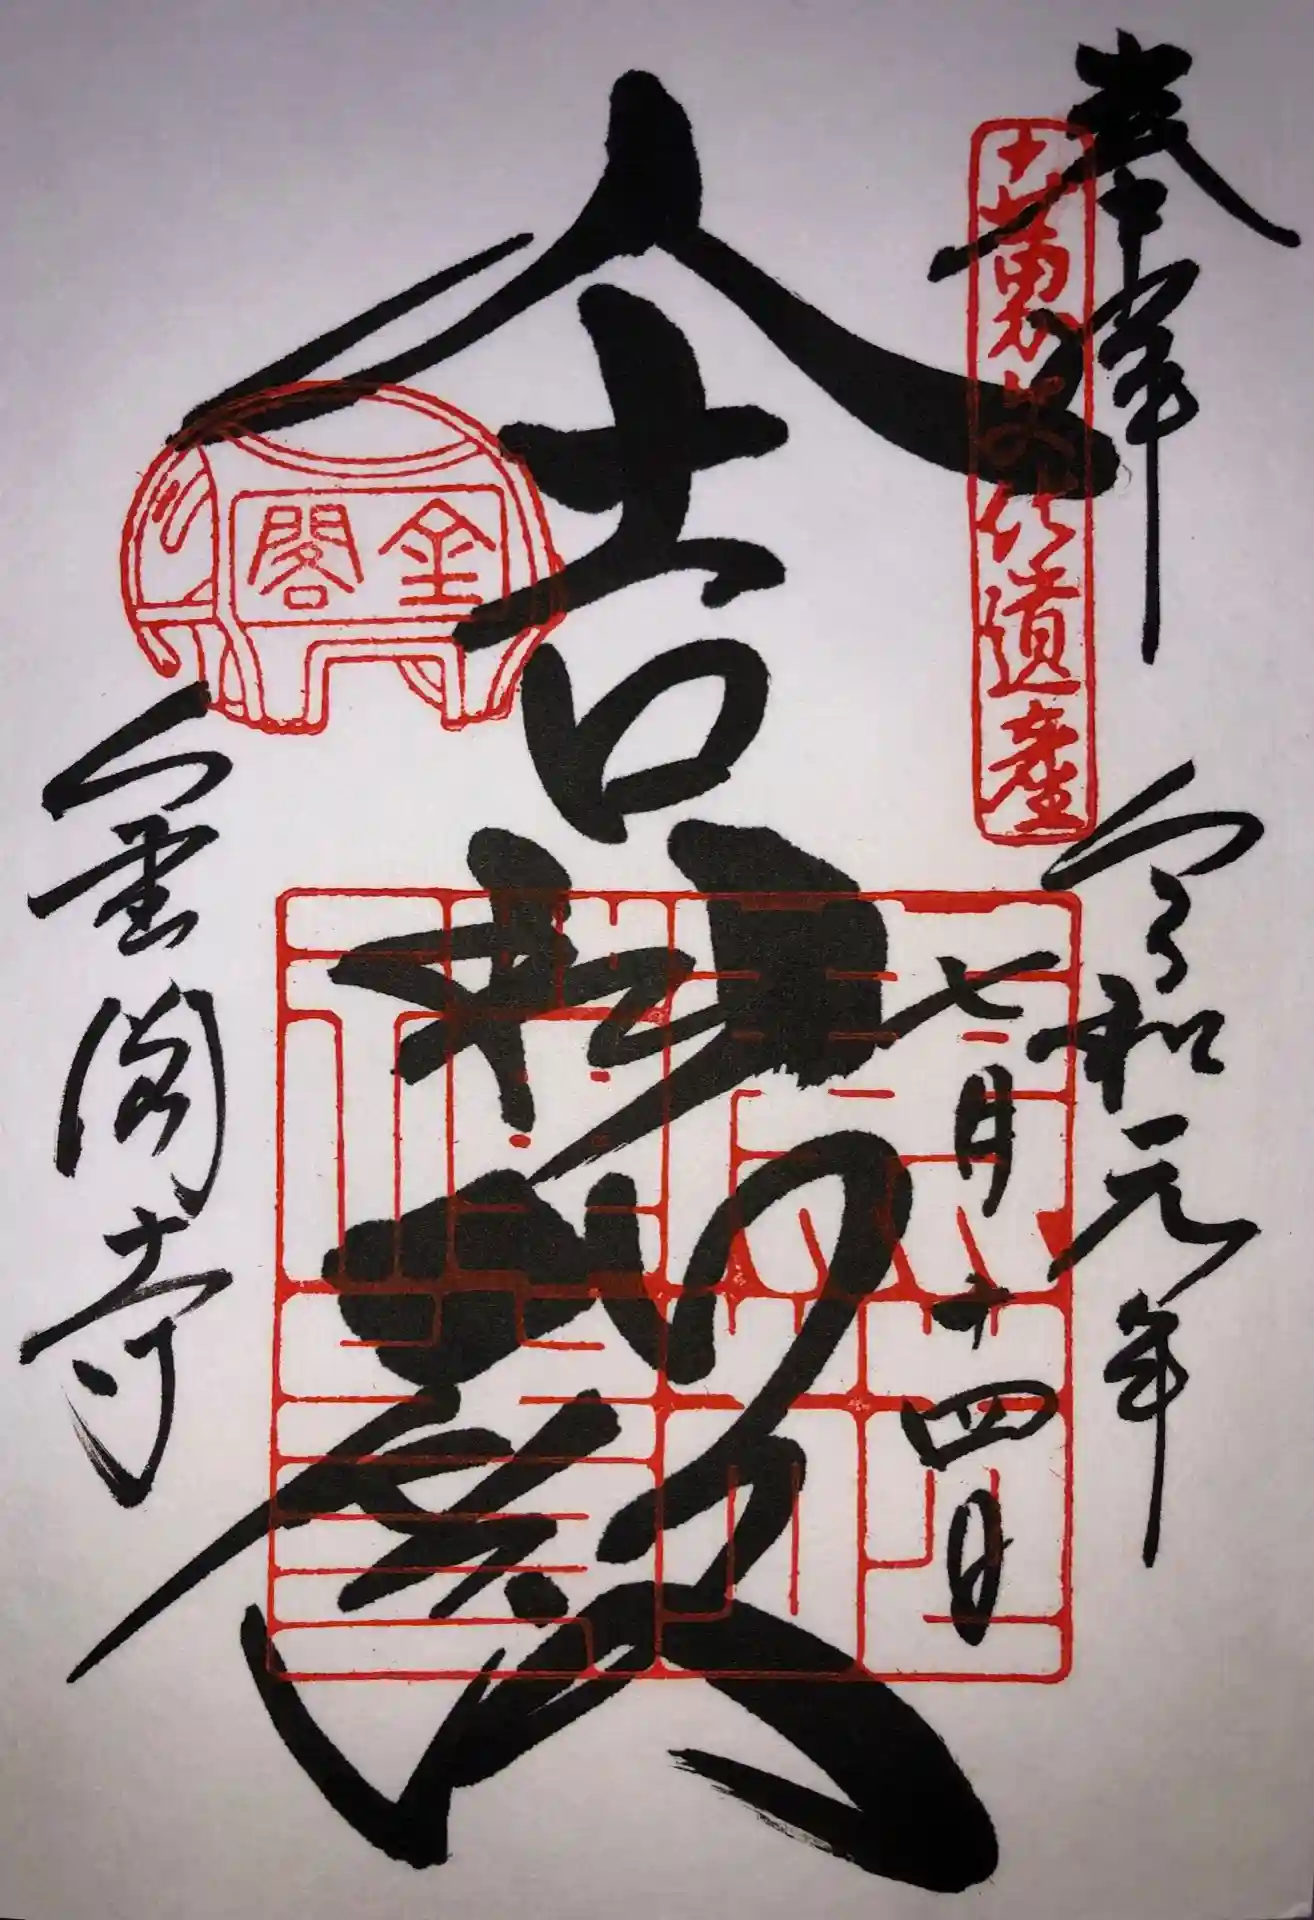 奉拝
世界文化遺産
令和元年
七月十四日
舎利殿
金閣
金閣寺